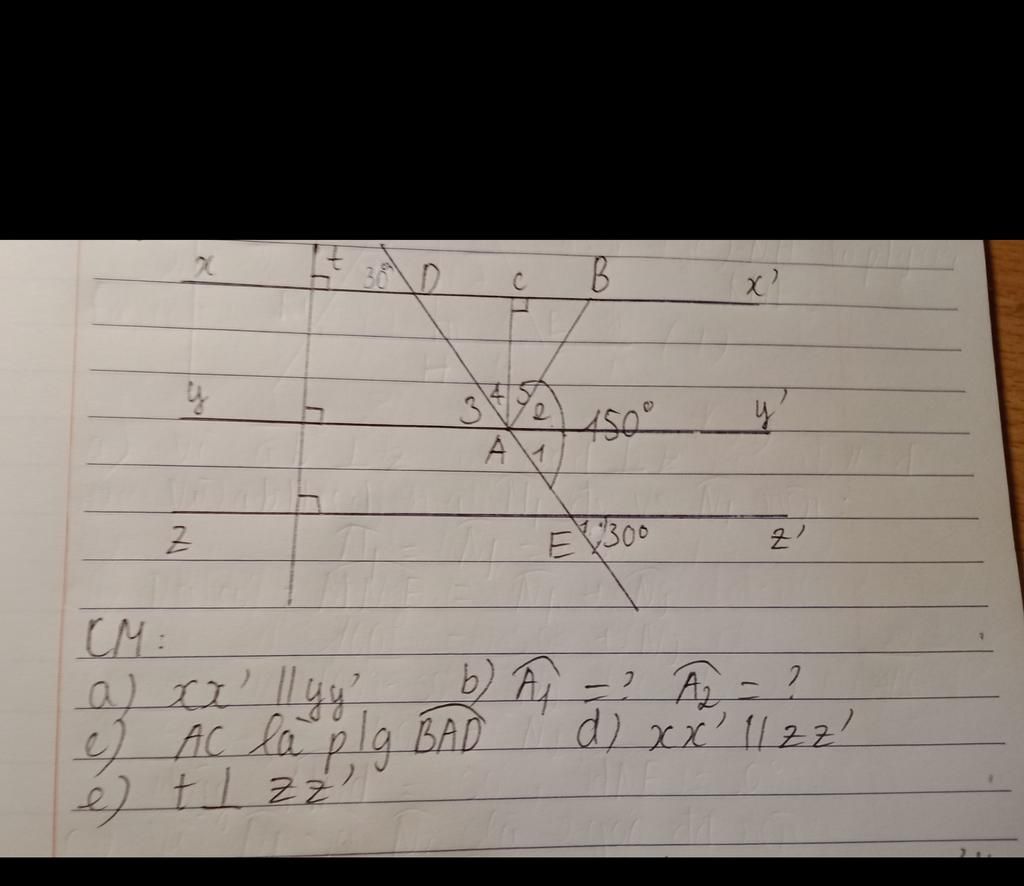 x t 30° D C B x'
y 3 4 5 2 150° y'
A 1
z E 1 30° z'
CM:
a) xx' // yy' b) Â1 = ? Â2 = ?
c) AC là p/g BAD d) xx' // zz'
e) t ⊥ zz'